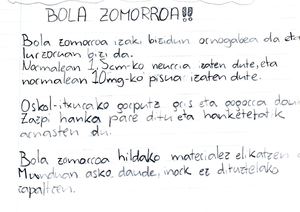 BOLA ZOMORROA!!
Bola zomorroa izaki bizidun ornogabea da eta
lurzoruan bizi da.
Normalean 1,5cm-ko neurria izaten dute, eta
normalean 10mg-ko pisua izaten dute.
Oskol-itxurako gorputz gris eta gogorra dau
Zazpi hanka pare ditu eta hanketatik
arnasten du.
Bola zomorroa hildako materialez elikatzen
Munduan asko daude, inork ez dituztelako
zapaltzen.